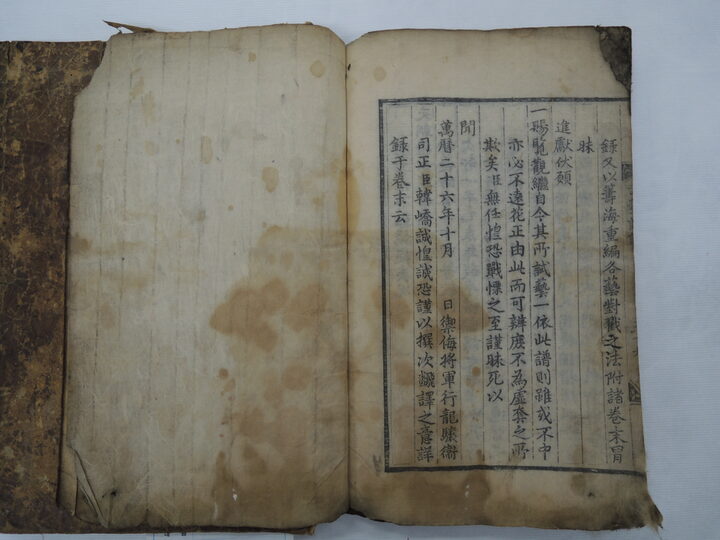 錄又以籌海重編各藝對戳之法附諸卷末冒
昧
進獻伏願
一賜覽觀繼自今其所試藝一依此譜則雖或不中
亦必不遠花正由此而可辨庶不為虛套之所
欺矣臣無任惶恐戰慄之至謹昧死以
聞
萬曆二十六年十月 日禦侮將軍行龍驤衛
司正臣韓嶠誠惶誠恐謹以撰次飜譯之意詳
錄于卷末云